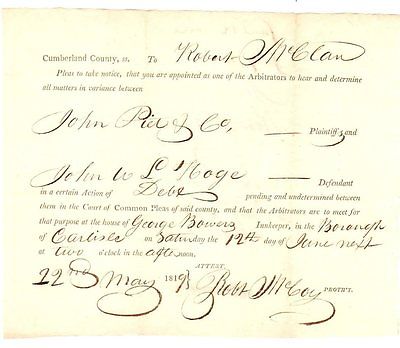 Cumberland County, ss. To Robert McClan
Pleas to take notice, that you are appointed as one of the Arbitrators to hear and determine
all matters in variance between
John & Co, — Plaintiffs and
John W — Defendant
in a certain Action of Debt pending and undetermined between
them in the Court of Common Pleas of said county, and that the Arbitrators are to meet for
that purpose at the house of George Bowers Innkeeper, in the Borough
of Carlisle on Saturday the 12th day of June next
at two o'clock in the afternoon.
ATTEST
22nd May 181 Robt McCoy PROTH'Y.